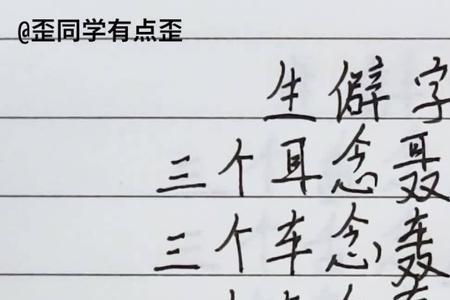 @歪同学有点歪
生僻字
三个耳念聂
三个车念轰